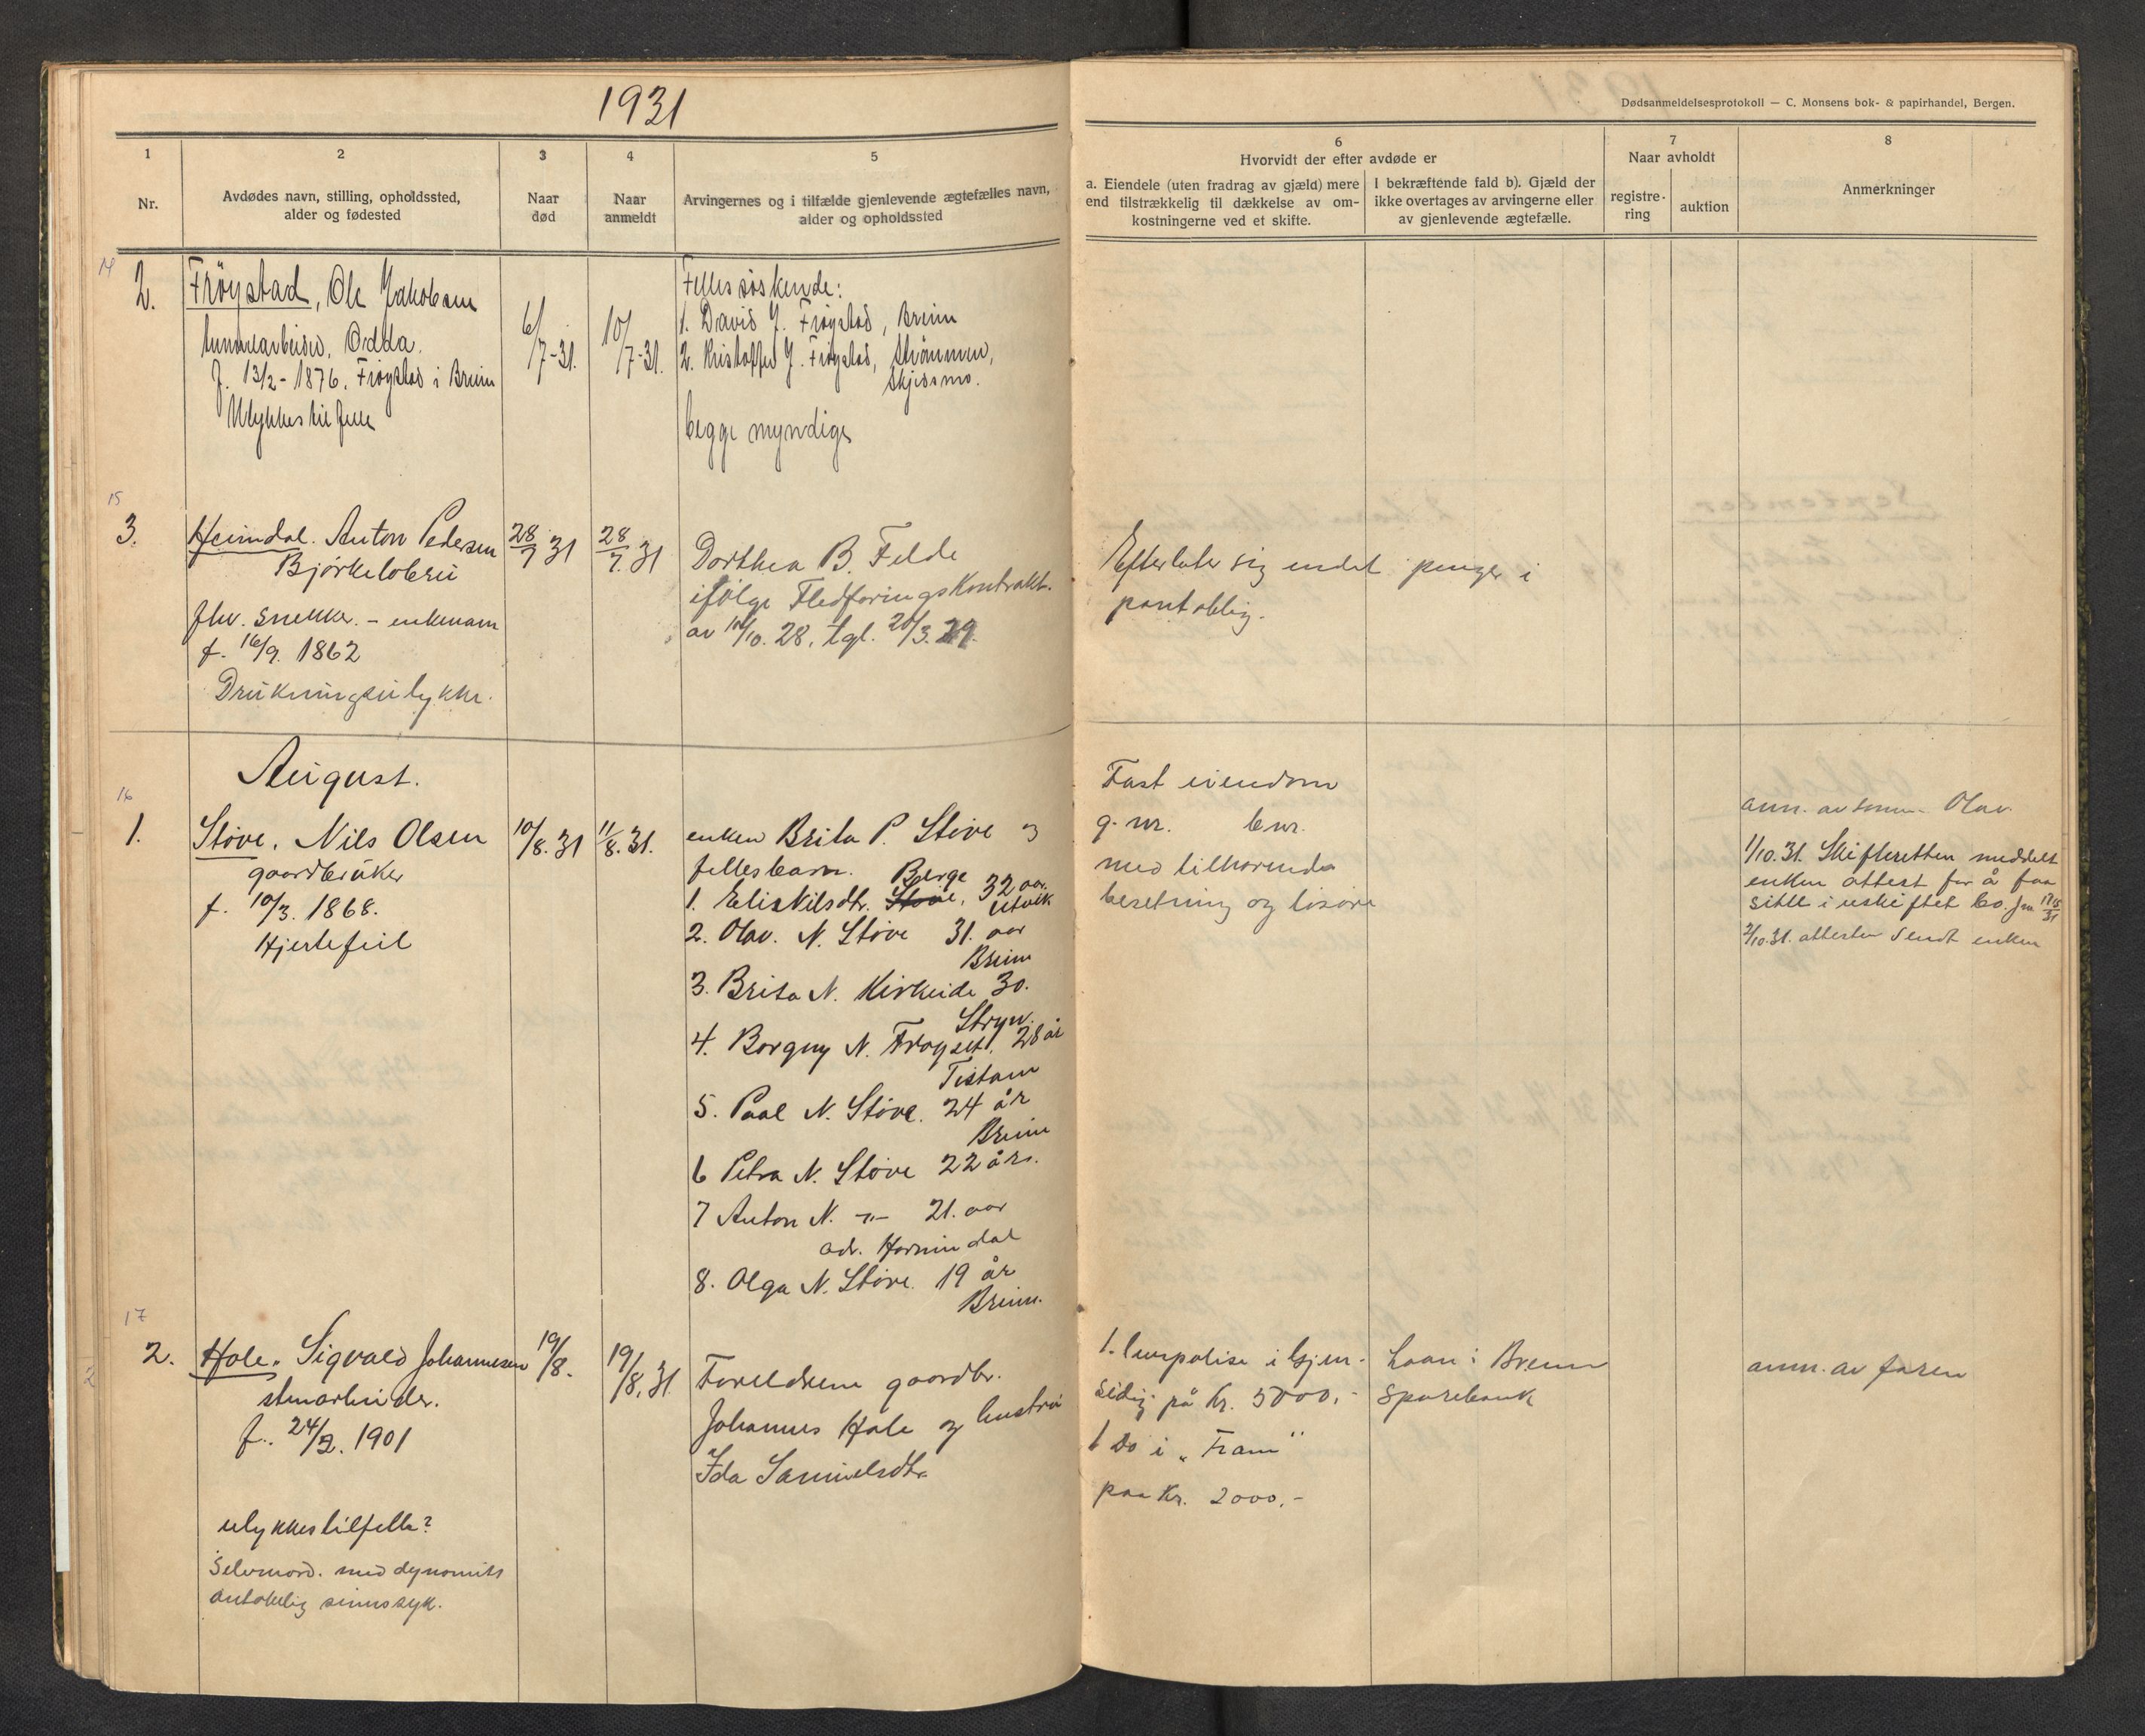 1931
Dødsanmeldelsesprotokoll — C. Monsens bok- & papirhandel, Bergen.
1
2
3
4
5
6
7
8
Nr.
Avdødes navn, stilling, opholdssted,
alder og fødested
Naar
død
Naar
anmeldt
Arvingernes og i tilfælde gjenlevende ægtefælles navn,
alder og opholdssted
Hvorvidt der efter avdøde er
a. Eiendele (uten fradrag av gjæld) mere
end tilstrækkelig til dækkelse av om-
kostningerne ved et skifte.
I bekræftende fald b). Gjæld der
ikke overtages av arvingerne eller
av gjenlevende ægtefælle.
Naar avholdt
registre-
ring
auktion
Anmerkninger
14
2.
Frøystad, Ole Jakobsen
tunnelarbeider, Odda.
f. 13/2 - 1876. Frøystad i Breim
Ulykkestilfelle
6/7-31.
10/7-31.
Fellessøskende:
1. David J. Frøystad, Breim
2. Kristoffer J. Frøystad, Strømmen,
Skjesmo.
begge myndige
15
3.
Heimdal. Anton Pedersen
Bjørkelobru
fhv. snekker. - enkemann
f. 16/9. 1862
Drukningsulykke.
28/7 31
28/7. 31
Dorthea B. Felde
ifølge Fledføringskontrakt.
av 10/10. 28. tgl. 20/3. 29.
Efterlater sig endel penger i
pantoblig.
August.
16
1.
Støve. Nils Olsen
gaardbruker
f. 10/3. 1868.
Hjertefeil
10/8. 31
11/8. 31.
enken Brita P. Støve og
fellesbarn. Berge
1. Elis Nilsdtr. Støve, 32 aar.
Utvik
2. Olav. N. Støve 31. aar
Breim
3. Brita N. Kirkeide 30.
Stryn.
4. Borgny N. Frøyset. 28 år
Tistam
5. Paal N. Støve. 24 år
Breim
6 Petra N. Støve 22 års.
7 Anton N. -"- 21. aar
adr. Hornindal
8. Olga N. Støve. 19 år
Breim.
Fast eiendom
g. nr. bnr.
med tilhørende
besetning og løsøre
anm. av sønn - Olav.
1/10. 31. Skifteretten meddelt
enken attest for å faa
sitte i uskiftet bo.
2/10. 31. attesten sendt enken
17
2.
Hole. Sigvald Johannesen
stenarbeider.
f. 24/2. 1901
ulykkestilfelle?
Selvmord. med dynamitt
antakelig sinnssyk.
19/8.
19/8. 31
Foreldrene gaardbr.
Johannes Hole og hustru
Ida Samuelsdtr
1. livspolise i Gjen-
sidig på kr. 5000,-
1 do i „Fram"
paa Kr. 2000.-
Laan i Breim
Sparebank
anm. av faren